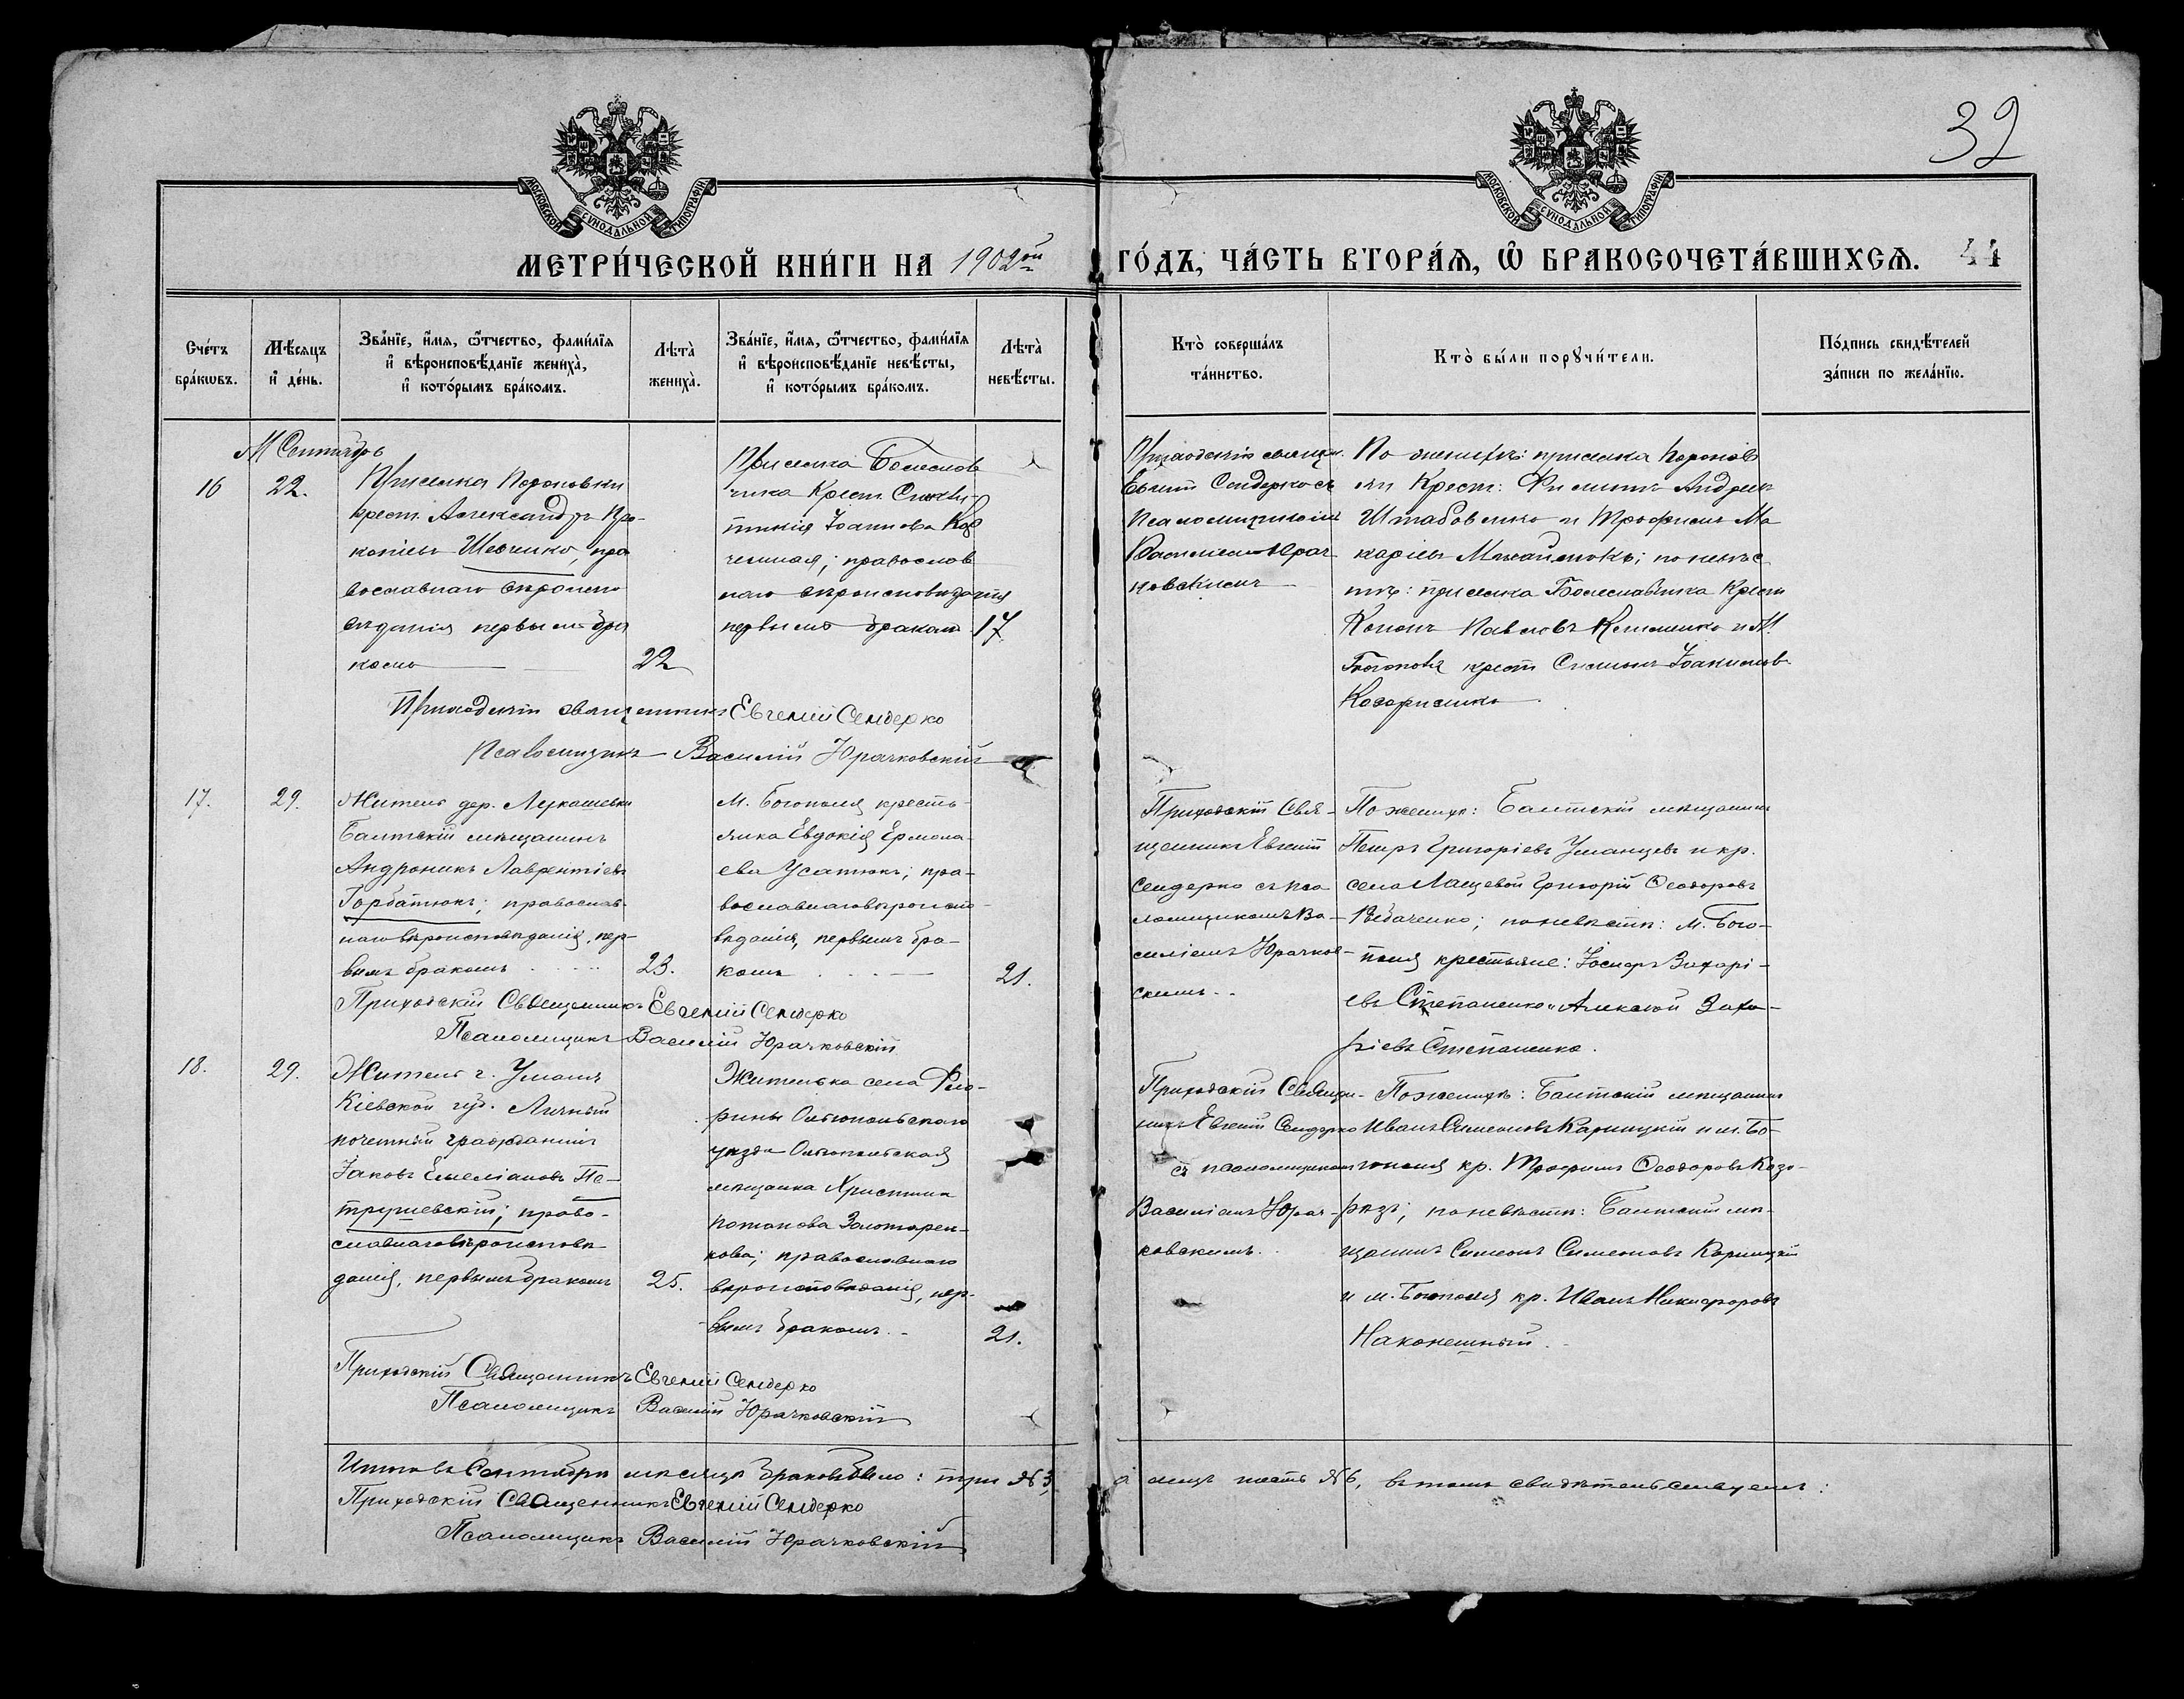 32
МОСКОВСКОЙ СѴНОДАЛЬНОЙ ТИПОГРАФІИ.
МОСКОВСКОЙ СѴНОДАЛЬНОЙ ТИПОГРАФІИ.
МЕТРИ́ЧЕСКОЙ КНИ́ГИ НА 1902ой ГО́ДЪ, ЧА́СТЬ ВТОРА́Я, Ѽ БРАКОСОЧЕТА́ВШИХСѦ. 44
Сче́тъ
бра́кѡвъ.
Мѣ́сяцъ
и҆ де́нь.
Зва́нїе, и҆́мя, ѻ҆́тчество, фами́лїя
и҆ вѣроисповѣ́данїе жениха̀,
и҆ кото́рымъ бра́комъ.
Лѣта̀
жениха̀.
Зва́нїе, и҆́мя, ѻ҆́тчество, фами́лїя
и҆ вѣроисповѣ́данїе невѣ́сты,
и҆ кото́рымъ бра́комъ.
Лѣта̀
невѣ́сты.
Кто̀ соверша́лъ
та́инство.
Кто̀ бы́ли порꙋчи́тели.
По́дпись свидѣ́телей
за́писи по жела́нїю.
М Сентябрь
16
22.
Приселка
крест. Александръ Про-
копіевъ Шевченко, пра
вославнаго вѣроиспо
вѣданія первымъ бра
комъ
22
Приселка Болеслав
чика Крест.
Іоаннова
православ
наго вѣроисповѣданія
первымъ бракомъ
17
Приходскій священ.
Евгеній Сендерко съ
Псаломщикомъ
Василіемъ Юрач
ковскимъ
По женихѣ: приселка
Крест: Филиппъ Андреевъ
и Трофимъ Ма
каріевъ по невѣс
тѣ: приселка Болеславчика Крест
Кононъ Павловъ и М.
Богополя крест Симеонъ Іоакимовъ
Приходскій священникъ Евгеній Сендерко
Псаломщикъ Василій Юрачковскій
17.
29.
Житель дер. Лукашевки
Балтскій мѣщанинъ
Андроникъ Лаврентіевъ
Горбатюкъ; православ-
наго вѣроисповѣданія, пер-
вымъ бракомъ
23.
М. Богополя кресть-
янка Евдокія Ермола-
ева Усатюкъ; пра-
вославнаго вѣроиспо-
вѣданія, первымъ бра-
комъ
21.
Приходскій Свя-
щенникъ Евгеній
Сендерко съ пса
ломщикомъ Ва-
силіемъ Юрачков-
скимъ
По женихѣ: Балтскій мѣщанинъ
Петръ Григоріевъ Уманцевъ и кр.
села Лащевой Григорій Ѳеодоровъ
по невѣстѣ: М. Бого-
поля крестьяне: Іосифъ Захарі-
евъ Степаненко и Алексѣй Заха-
ріевъ Степаненко.
Приходскій Священникъ Евгеній Сендерко
Псаломщикъ Василій Юрачковскій
18.
29.
Житель г. Умани
Кіевской губ. Личный
почетный гражданинъ
Іаковъ Емеліановъ Пе-
трушевскій; право-
славнаго вѣроисповѣ-
данія, первымъ бракомъ
25.
Жителька села Фло-
рины Ольгопольскаго
уѣзда Ольгопольская
мѣщанка Христина
Потапова Золотарен-
кова; православнаго
вѣроисповѣданія, пер-
вымъ бракомъ
21.
Приходскій Священ-
никъ Евгеній Сендерко
съ псаломщикомъ
Василіемъ Юрач-
ковскимъ.
По женихѣ: Балтскій мѣщанинъ
Иванъ Симеоновъ Карницкій и м. Бо-
гополя кр. Трофимъ Ѳеодоровъ
по невѣстѣ: Балтскій мѣ-
щанинъ Симеонъ Симеоновъ Карницкій
и м. Богополя кр. Иванъ Никифоровъ
Наконешный.
Приходскій Священникъ Евгеній Сендерко
Псаломщикъ Василій Юрачковскій
Итого въ Сентябрѣ мѣсяцѣ браковъ было: три № 3, а лицъ шесть № 6, въ томъ свидѣтельствуемъ:
Приходскій Священникъ Евгеній Сендерко
Псаломщикъ Василій Юрачковскій